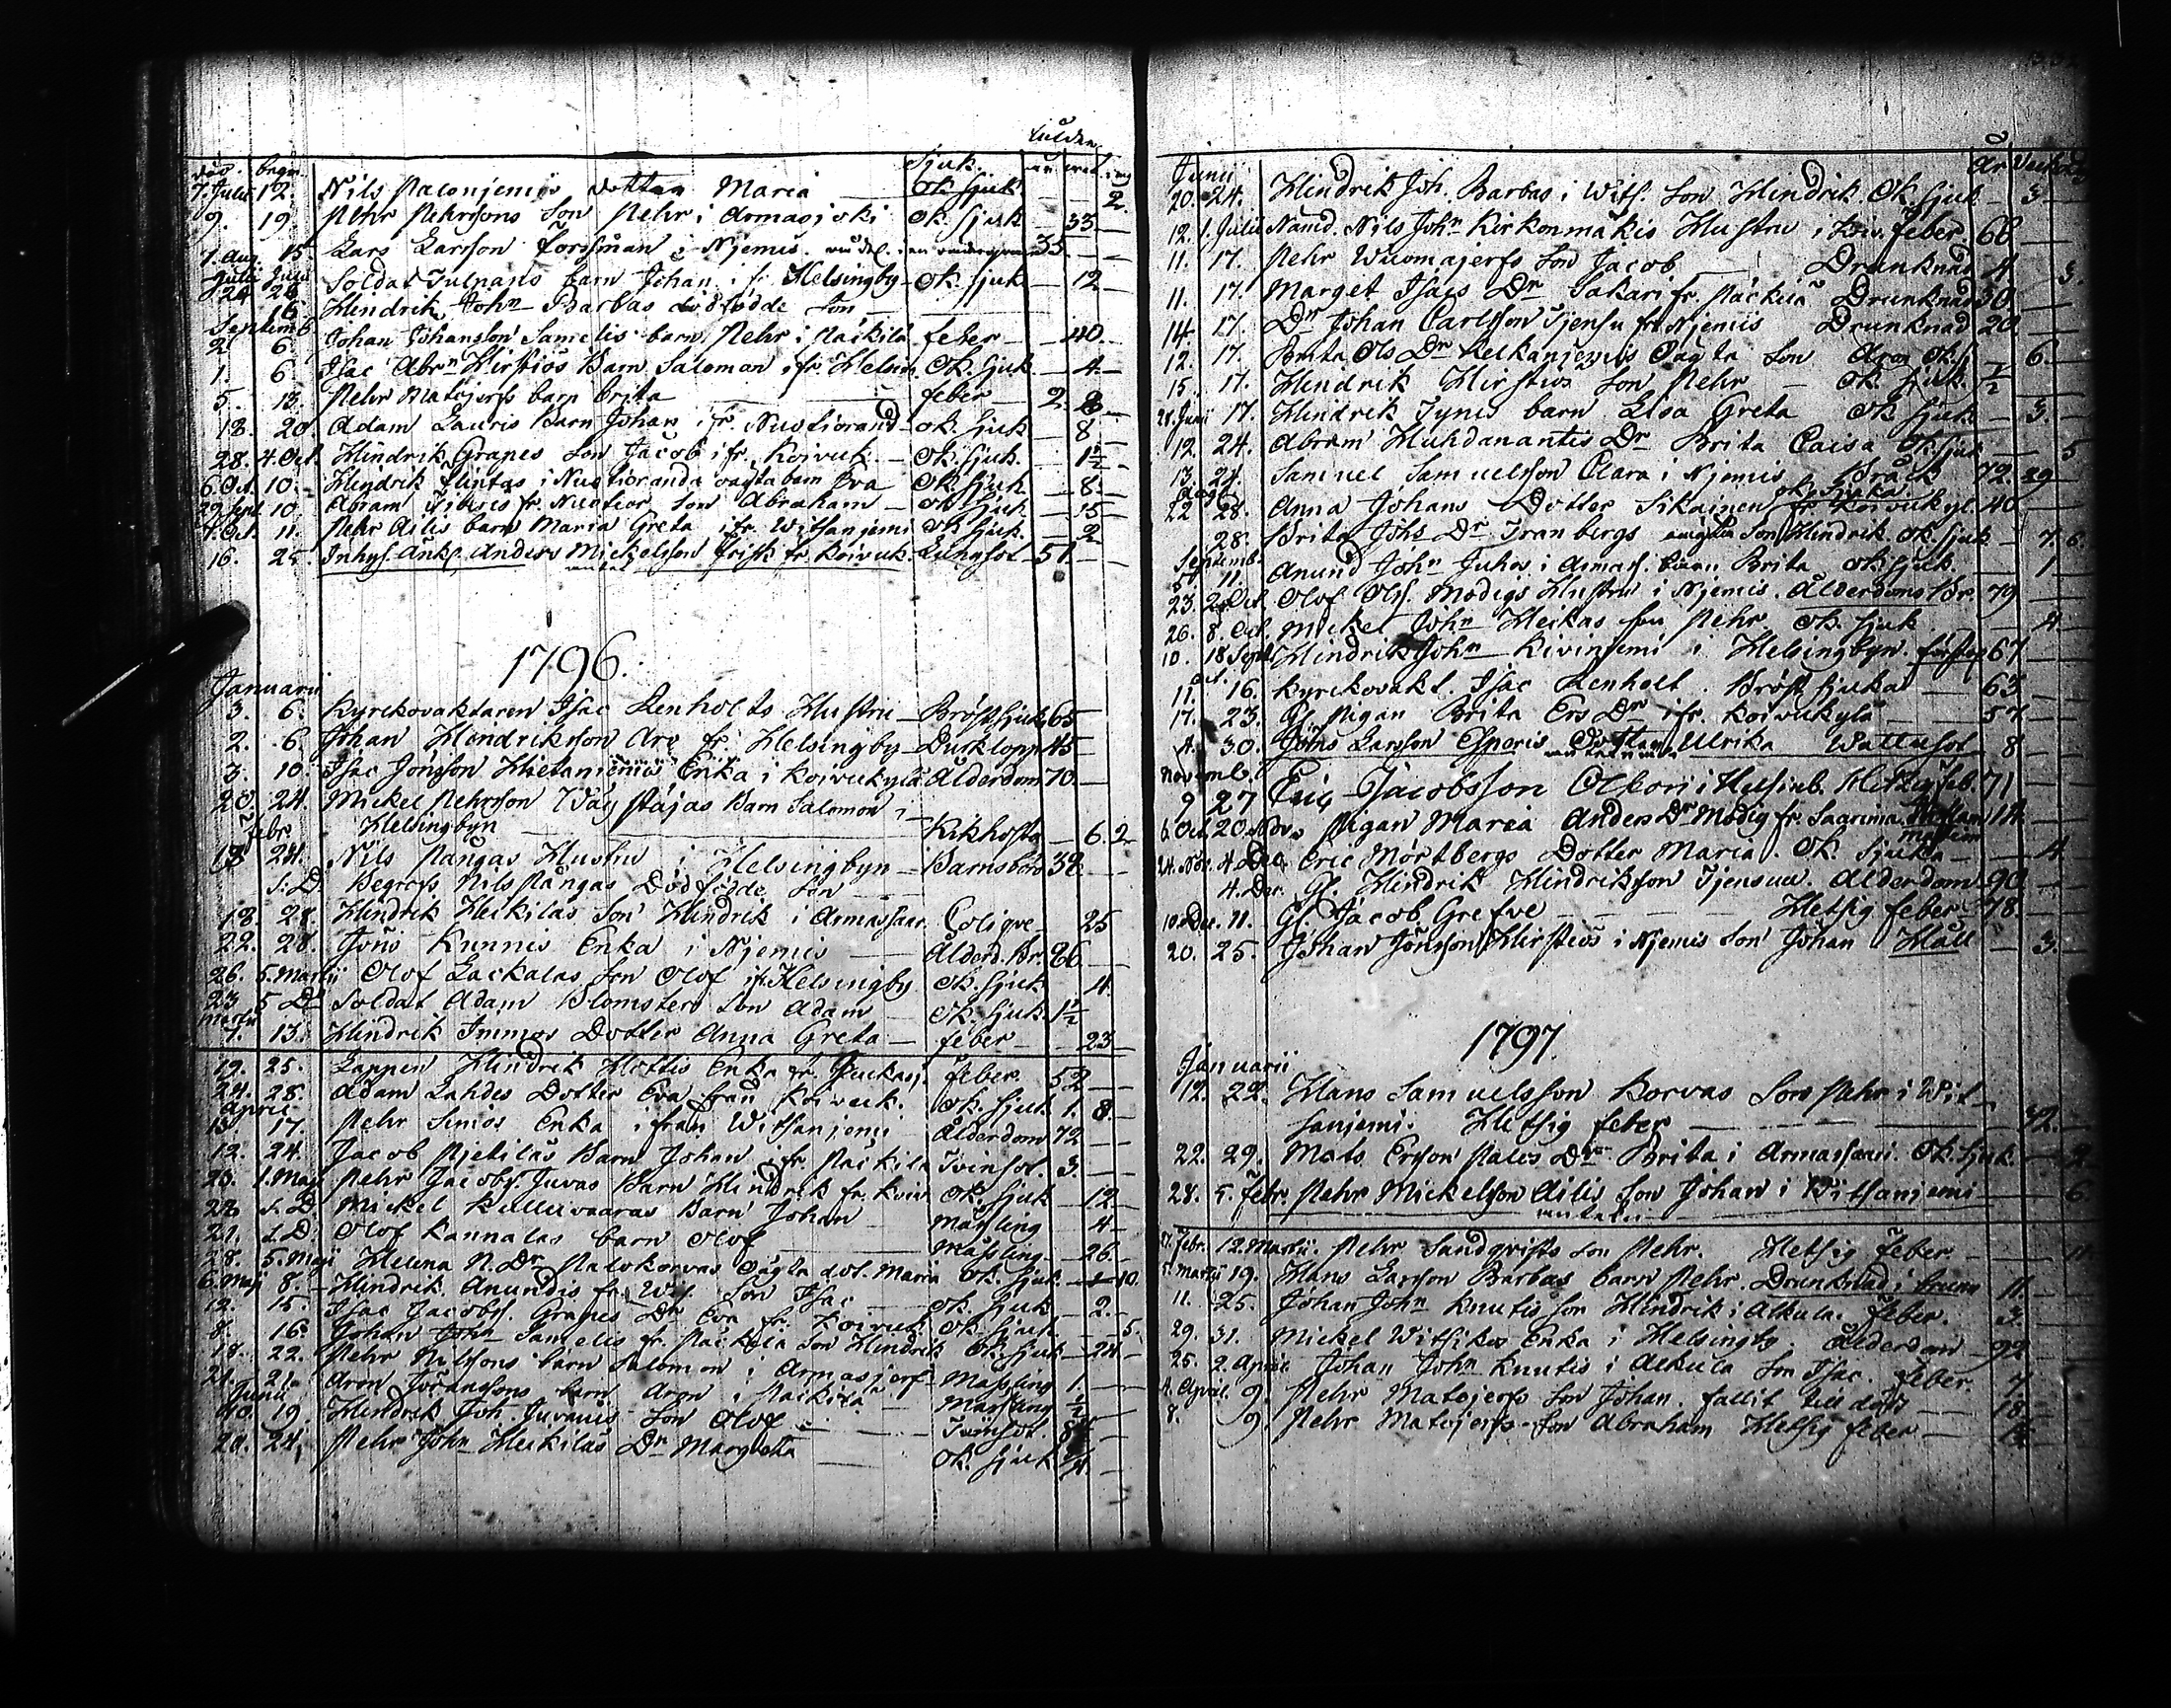 död. begr. Sjuk. ålder
7. Julii 12. Nils dotter Maria ok. sjuk 2.
9. 19 Pehr Pehrssons Son Pehr i Armasjerfvi ok. sjuk 33.
1. Aug. 15. Lars Larsson Forssman i Njemis 35
Julii Julii
24 26 Soldat barn Johan i fr. Helsingby ok. sjuk 12
16 Hindrik John Barbas dödfödde son
Septemb.
2. 6. Johan Johansson Samelis barn Pehr i Päckila feber 40.
1. 6 Isac Abrn Hirstiös Barn Salomon i fr. Helsin. Ok. sjuk 4.
5. 13. Pehr Matojerfs barn Brita feber 2. 8
18. 20. Adam Lauris Barn Johan i fr. Niustiorand ok. sjuk 8
28. 4. Oct. Hindrik Grapes Son Jacob i fr. Koivuk. Ok. sjuk. 1½
6. Oct. 10. Hindrik Flintas i Niustioranda oägta barn Eva Ok. sjuk 8.
29. Sept. 10. Abram fr. Niustior. son Abraham ok. sjuk 15
4. Oct. 11. Pehr Ailis barn Maria Greta i fr. Witsanjemi ok sjuk. 2
16. 25. Inhys. Änkl. Anders Mickelsson Frisk fr. Koivuk. Lungsot 51.
1796.
Januarii
3. 6. Kyrckovaktaren Isac Renholts Hustru Bröstsjuk 65
2. 6. Johan Hendriksson Are fr. Helsingby Durklopp 45
3. 10. Isac Jonsson Hietaniemis Enka i Koivukylä Ålderdom 70.
20. 24. Mickel Pehrsson Väystäjas Barn Salomon i
Febr. Helsingbyn Kikhosta 6. 2
18 24. Nils Pångas Hustru i Helsingbyn Barnsbörd 38.
s. D. Begrofs Nils Pångas Dödfödde son
18. 28. Hindrik Heikilas Son Hindrik i Armassaar. Colique 25
22. 28. Jöns Kunnis Enka i Njemis Ålderd. Br. 86
26. 5. Martii Olof Lackalas Son Olof i fr. Helsingby ok. sjuk 4.
23. 5 Do Soldat Adam Blomsters Son Adam ok. sjuk. 1½
Martii
7. 13. Hindrik Immos Dotter Anna Greta feber 23
19. 25. Lappen Hindrik Hottis Enka fr. feber. 52
24. 28. Adam Lahdes Dotter Eva från Koivuk. Ok. sjuk 1. 8.
April
13 17. Pehr Simos Enka ifrån Witsanjemi Ålderdom 72
12. 24. Jacob Njetiläs Barn Johan i fr. Päckila Tvinsot. 3.
20. 1. Maji Pehr Jacobs. Juvas Barn Hindrik fr. Koiv. ok. sjuk 12
22 s. D. Mickel Kulluvaaras Barn Johan Mässling 4
21. s. D. Olof Kannalas barn Olof Mässling 26
28. 5. Maji Helena N. Dr. Palokorvas Oägta dot. Maria ok. sjuk 10.
6. Maji 8. Hindrik Anundis fr. Wit. Son Isac ok. sjuk 2.
12. 15. Isac Jacobs. Grapes Dr Eva fr. Koivuk. ok. sjuk 5.
8. 16. Johan John Samelis fr. Päckila Son Hindrik ok. sjuk 24
18. 22. Pehr Nilssons barn Salomon i Armasjerf. Mässling 1.
21. Aron Göranssons barn Aron i Päckila Mässling ½
Junii
10. 19. Hindrik Joh. Juvanis Son Olof Tvinsot.
20. 24. Pehr John Heikiläs Dr Margreta ok. sjuk
Junii År
20. 24. Hindrik Joh. Barbas i Wits. Son Hindrik Ok. sjuk 3
12. 1. Julii Nämd. Nils John Kirkonmäkis Hustru i Koiv. feber 66
11. 17. Pehr Wuomajerfs Son Jacob Drunknad 4 3.
11. 17. Marget Isacs Dr Sakari fr. Päckila Drunknad 30
14 17. Dr Johan Carlsson Tjensu fr. Njemis Drunknad 20
12. 17. Brita Ols Dr oägta Son Aron Ok. s. 6.
15. 17. Hindrik Hirstiös Son Pehr ok. sjuk ½
28. Junii 17. Hindrik Tynis barn Lisa Greta ok sjuk 3.
12. 24. Abram Huhdanantis Dr Brita Caisa Ok. sjuk 5
13. 24. Samuel Samuelsson Clara i Njemis Bråck 72. 29
Aug. ok. sjuka
22 28. Anna Johans Dotter Sikainen fr. Koivukyl. 40
28. Brita Johs Dr Tranbergs oägta Son Hindrik ok. sjuk 7. 6.
Septemb.
5. 11. Anund John Juhos i Armas. barn Brita ok. sjuk 1
23. 2. Oct. Olof Ols. Modigs Hustru i Njemis. Ålderdoms Br. 79
26. 8. Oct. Mickel John Heikas son Pehr ok. sjuk 4
10. 18 Sept. Hindrik John Kivinjemi i Helsingbyn. 67
Oct.
11. 16. Kyrckovakt. Isac Renholt. Bröst sjuka 63
17. 23. Gl. Pigan Brita Ers Dr i fr. Koivukylä 57
30. Jöns Larsson Esperis Dotter Ulrika Wattusot 8
Novemb.
9 27 Eric Jacobsson Olkori i Helsinb. Hetsig feb. 71
6. Oct. 20. Nov. Pigan Maria Anders Dr Modig fr. Saarima. 14
24. Nov. 4 Dec. Eric Mörtbergs Dotter Maria. Ok. sjuka 4
4. Dec. Gl. Hindrik Hindriksson Tjensuu. Ålderdom 90
10. Dec. 11. Gl. Jacob Grefve Hetsig feber 78.
20. 25. Johan Jönsson Hirstiös i Njemis Son Johan Håll 3.
1797
Januarii
12. 22. Hans Samuelsson Korvas Son Pehr i Wit-
sanjemi. Hetsig feber 32.
22. 29. Mats Ersson Palos Dr Brita i Armassaari. Ok. sjuk. 2
28. 5. Febr. Pehr Mickelsson Ailis Son Johan i Witsanjemi 6.
27. Febr. 12. Martii. Pehr Sandqvists Son Pehr. Hetsig Feber 11
Martii 19. Hans Larsson Barbas barn Pehr. Drunknad i brunn 11.
11. 25. Johan John Knutis Son Hindrik i Alkula. Feber. 3.
29. 31. Mickel Witsikos Enka i Helsingby. Ålderdom 92
25. 2. April Johan John Knutis i Alkula Son Isac. Feber. 7
4. April 9. Pehr Matojerfs Son Johan. fallit till döds 18
8. 9. Pehr Matojerfs Son Abraham Hetsig feber